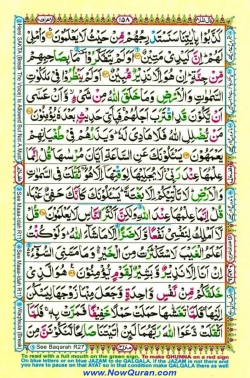 قال الملأ ٩
١٥٨
الاعراف ٧
كَذَّبُوْا بِاٰيٰتِنَا سَنَسْتَدْرِجُهُمْ مِّنْ حَيْثُ لَا يَعْلَمُوْنَ ۝ وَاُمْلِيْ
لَهُمْ ۗ اِنَّ كَيْدِيْ مَتِيْنٌ ۝ اَوَلَمْ يَتَفَكَّرُوْا ۗ مَا بِصَاحِبِهِمْ
مِّنْ جِنَّةٍ ۗ اِنْ هُوَ اِلَّا نَذِيْرٌ مُّبِيْنٌ ۝ اَوَلَمْ يَنْظُرُوْا فِيْ مَلَكُوْتِ
السَّمٰوٰتِ وَالْاَرْضِ وَمَا خَلَقَ اللّٰهُ مِنْ شَيْءٍ ۙ وَّاَنْ عَسٰٓى
اَنْ يَّكُوْنَ قَدِ اقْتَرَبَ اَجَلُهُمْ ۚ فَبِاَيِّ حَدِيْثٍۭ بَعْدَهٗ يُؤْمِنُوْنَ ۝
مَنْ يُّضْلِلِ اللّٰهُ فَلَا هَادِيَ لَهٗ ۗ وَيَذَرُهُمْ فِيْ طُغْيَانِهِمْ
يَعْمَهُوْنَ ۝ يَسْـَٔلُوْنَكَ عَنِ السَّاعَةِ اَيَّانَ مُرْسٰىهَا ۗ قُلْ اِنَّمَا
عِلْمُهَا عِنْدَ رَبِّيْ ۚ لَا يُجَلِّيْهَا لِوَقْتِهَآ اِلَّا هُوَ ۘ ثَقُلَتْ فِي السَّمٰوٰتِ
وَالْاَرْضِ ۗ لَا تَاْتِيْكُمْ اِلَّا بَغْتَةً ۗ يَسْـَٔلُوْنَكَ كَاَنَّكَ حَفِيٌّ عَنْهَا ۗ
قُلْ اِنَّمَا عِلْمُهَا عِنْدَ اللّٰهِ وَلٰكِنَّ اَكْثَرَ النَّاسِ لَا يَعْلَمُوْنَ ۝ قُلْ
لَّآ اَمْلِكُ لِنَفْسِيْ نَفْعًا وَّلَا ضَرًّا اِلَّا مَا شَآءَ اللّٰهُ ۗ وَلَوْ كُنْتُ
اَعْلَمُ الْغَيْبَ لَاسْتَكْثَرْتُ مِنَ الْخَيْرِ ۛ وَمَا مَسَّنِيَ السُّوْٓءُ ۛ
اِنْ اَنَا اِلَّا نَذِيْرٌ وَّبَشِيْرٌ لِّقَوْمٍ يُّؤْمِنُوْنَ ۝ هُوَ الَّذِيْ
خَلَقَكُمْ مِّنْ نَّفْسٍ وَّاحِدَةٍ وَّجَعَلَ مِنْهَا زَوْجَهَا لِيَسْكُنَ
اِلَيْهَا ۚ فَلَمَّا تَغَشّٰىهَا حَمَلَتْ حَمْلًا خَفِيْفًا فَمَرَّتْ بِهٖ ۚ فَلَمَّآ
اَثْقَلَتْ دَّعَوَا اللّٰهَ رَبَّهُمَا لَئِنْ اٰتَيْتَنَا صَالِحًا لَّنَكُوْنَنَّ مِنَ
See Baqarah R27
To read with a full mouth on the green sign. To make GHUNNA on a red sign
On blue letters or on blue JAZAM to do QALQALA. If the JAZAM is not there and
you have to pause on that AYAT so in that condition make QALQALA there as well
www.NowQuran.com